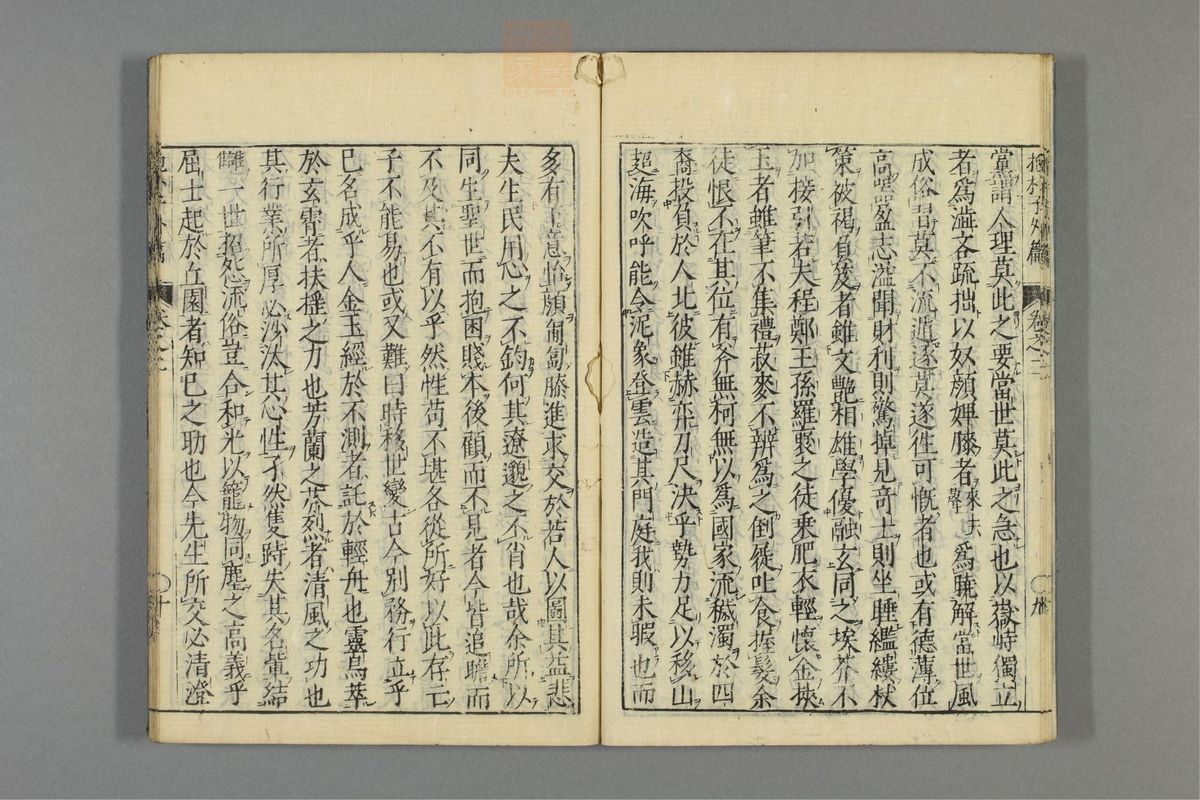 抱朴子外篇 卷之二 ○九
黨謂人理莫此之要當世莫此之急也以嶽峙獨立
者爲澁吝疏拙以奴顏婢睞者為曉解當世風
成俗習莫不流遁遂往可慨者也或有德薄位
高器盈志溢聞財利則驚掉見奇士則坐睡繿縷杖
策被褐負笈者雖文艶相雄學優融玄同之埃芥不
加接引若夫程鄭王孫羅裒之徒乗肥衣輕懷金挾
玉者雖筆不集禮菽麥不辨爲之倒屣吐食握髮余
徒恨不在其位有斧無柯無以爲國家流穢濁於四
裔投負於人北彼雖赫奕刀尺決乎勢力足以移山
超海吹呼能令泥象登雲造其門庭我則未暇也而
多有下意怡顏匍匐膝進求交於若人以圖其益悲
夫生民用心之不鈞何其遼邈之不肖也哉余所以
同生聖世而抱困賤本後顧而不見者今皆追瞻而
不及其不有以乎然性苟不堪各從所好以此存亡
子不能易也或又難曰時移世變古今別務行立乎
已名成乎人金玉經於不測者託於輕舟也靈烏萃
於玄霄者扶揺之力也芳蘭之芬烈者清風之功也
屈士起於丘園者知已之助也今先生所交必清澄
其行業所厚必沙汰其心性孑然隻跱失其名輩結
讎一世招怨流俗豈合和光以籠物同塵之高義乎